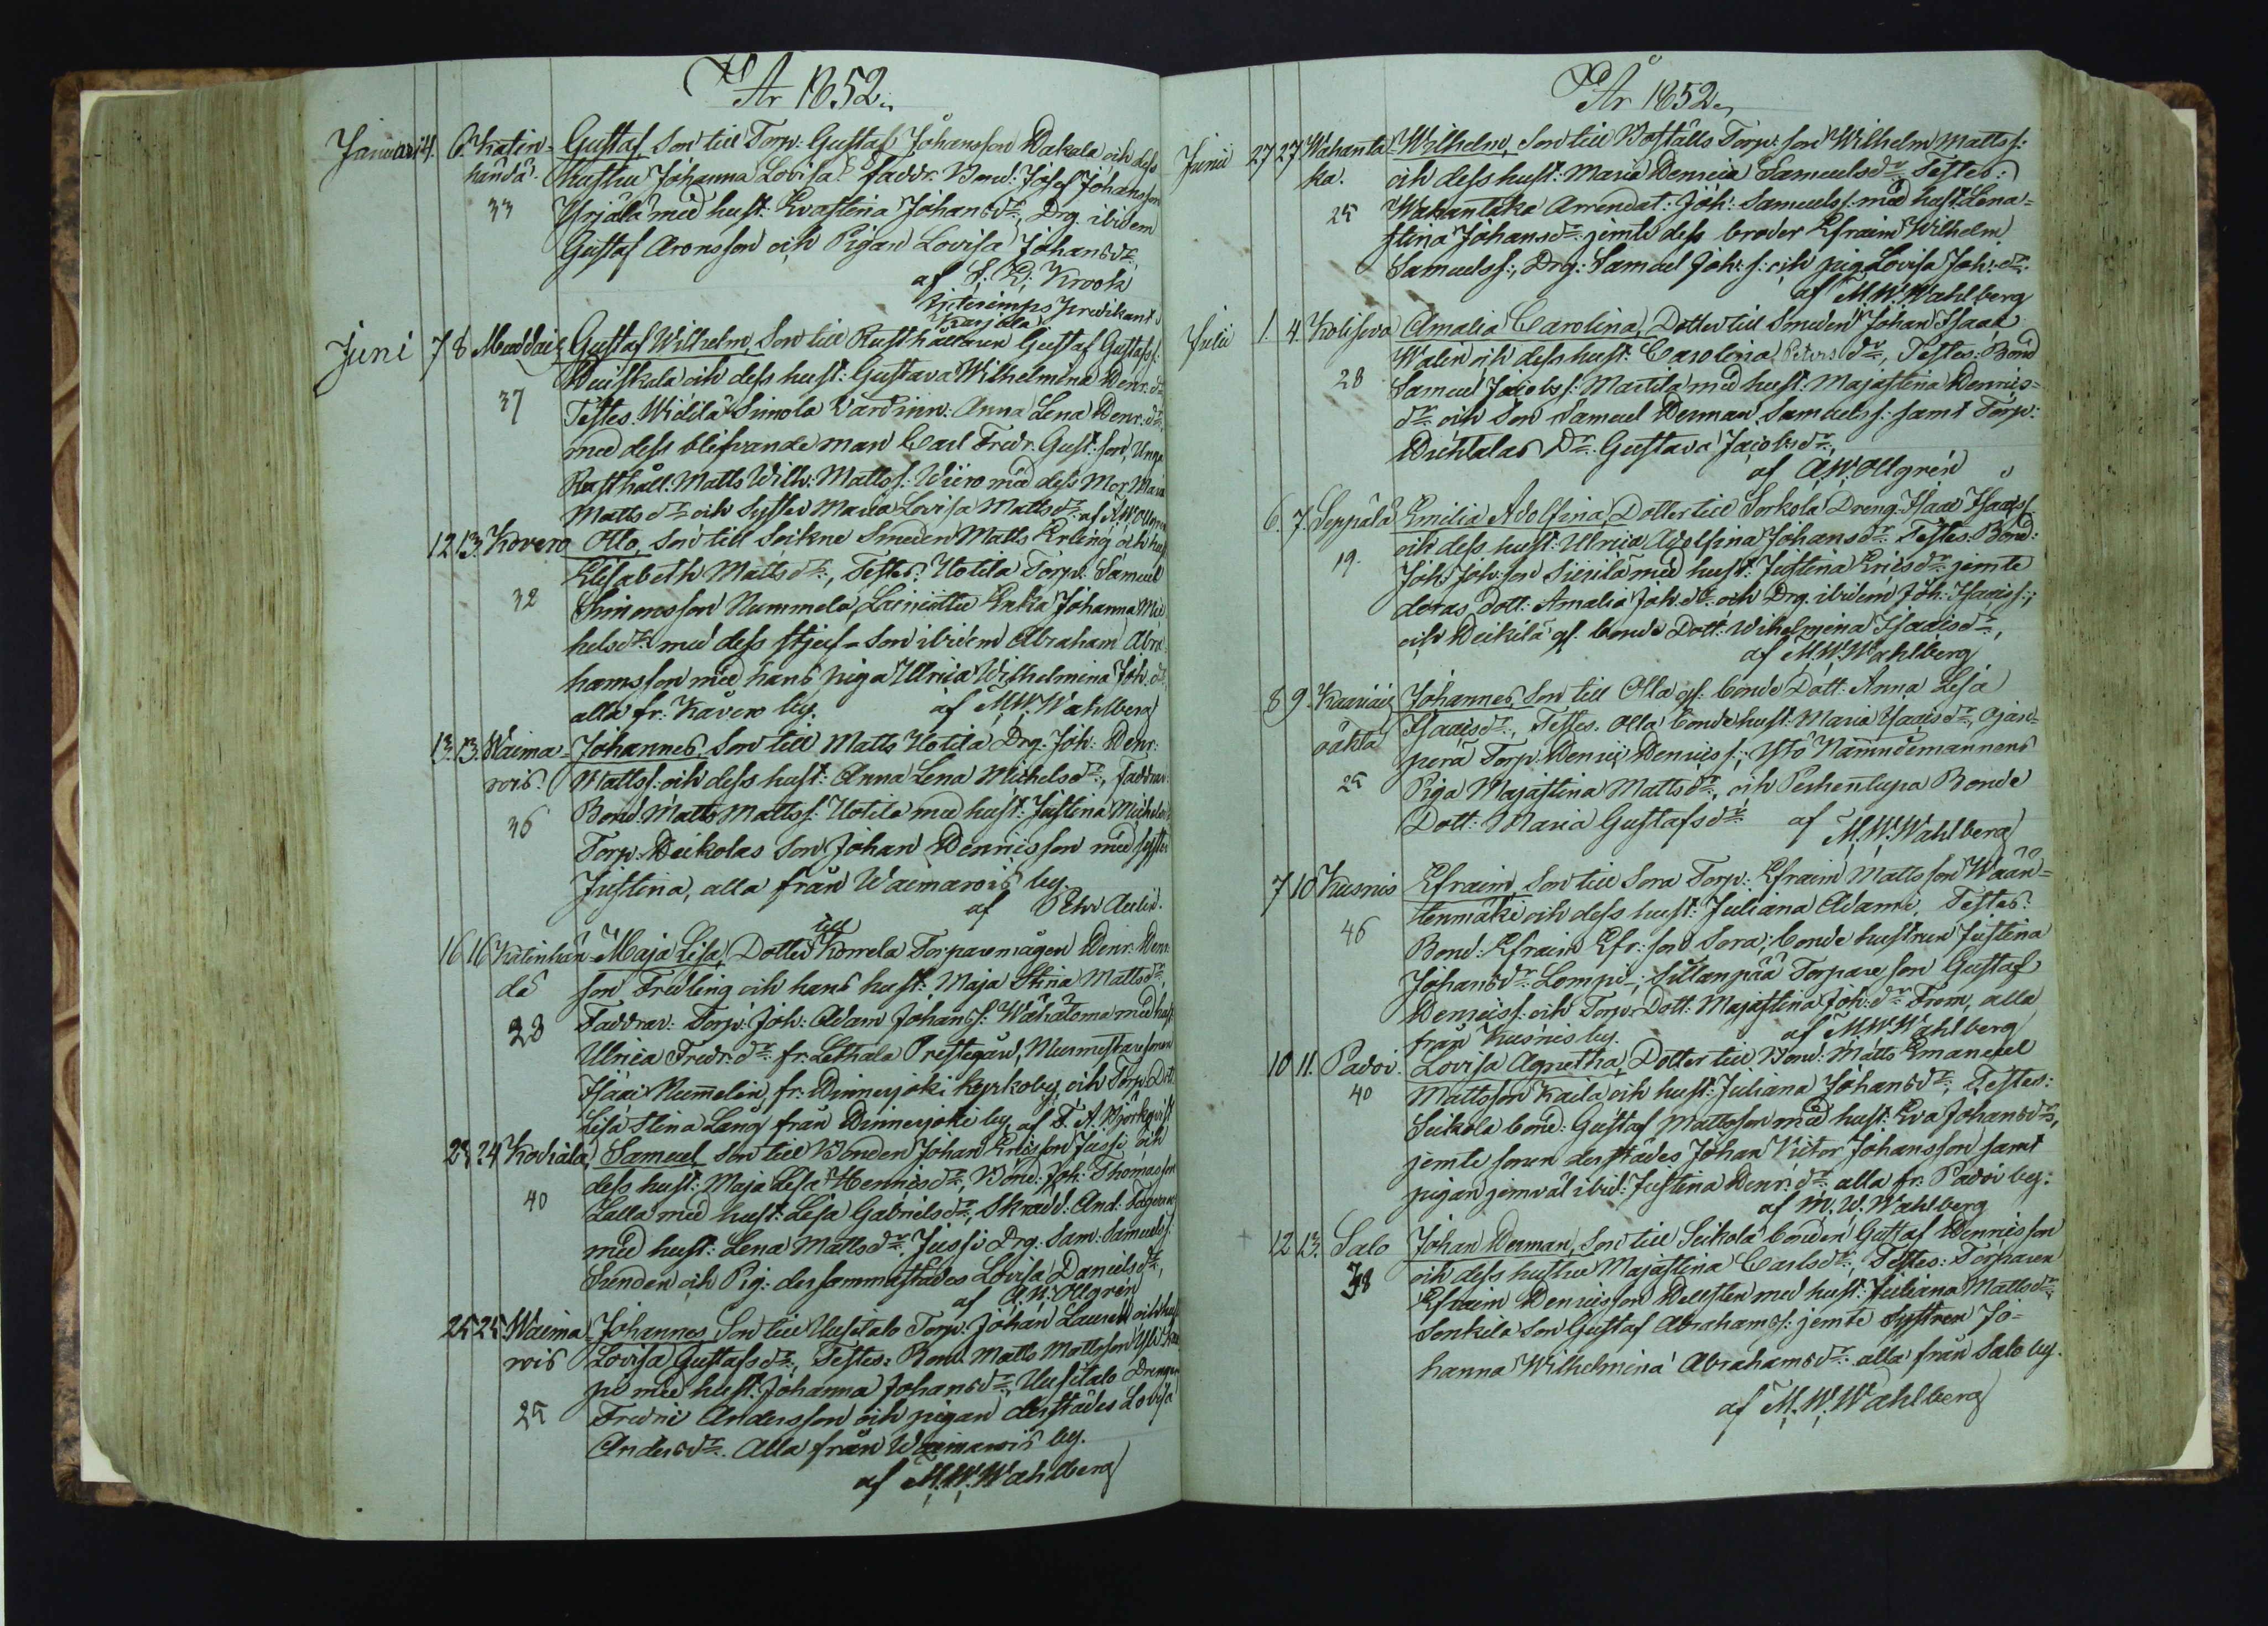 År 1852.
Januari 4. 6. Katin= Gustaf, Son till Torp. Gustaf Johansson Wakala och dess
händä. hustru Johanna Lovisa faddr. Bond: Josef Johansson
33 Yrjälä med hust: Evastina Johansdr, Drg. ibidem
Gustaf Aronsson och Pigan Lovisa Johansdr,
af Krook
Predikant
Karjala
Juni 7 8 Gustaf Wilhelm, Son till Rusthållaren Gustaf Gustafs:
och dess hust: Gustava Wilhelmina Henr: dr
37 Testes. Widilä Simola Värdinn: Anna Lena Henr: dr
med dess blifvande man Carl Fredr. Gust: son, Unga
Rusthåll: Matts Wilh: Mattss: med dess Mor Maria
Matts dr och Syster Maria Lovisa Mattsdr af A.W. Ollgren
12 13. Kovero Otto, Son till Sockne Smeden Matts Erling och hust
Elisabeth Mattsdr, Testes: Uotila Torp: Samuel
32 Simonsson Nummela, Enka Johanna Mic
helsdr: med dess styf=son ibidem Abraham Abra
hamsson med hans piga Ulrica Wilhelmina Joh. dr,
alla fr: Kåvero by. af M.W. Wahlberg
13. 13. Waima= Johannes, Son till Matts Uotila Drg. Joh: Henr:
rois. Mattss: och dess hust: Anna Lena Michelsdr, faddrar
36 Bond. Matts Mattss: Uotila med hust: Justina Michelsdr
Torp: Heikolas Son Johan Henricsson med syster
Justina, alla från Waimarois by.
af Ehr Aulin.
16 16 Katinhän= Maja Lisa, Dotter till Korvela Torparemågen Henr. Henr:
dä son Fredling och hans hust: Maja Stina Mattsdr,
28 Faddrar: Torp: Joh: Adam Johanss: Wähätoma med hust
Ulrica Fredr: dr: fr. Lethala Prestegård, Murmästaresonen
Isaac Numelin, fr: Hinnerjoki kyrkoby, och Torp: Dott
Lisa Stina Lång från Hinnerjoki by af F. A. Björkqvist
23 24 Kodiala, Samuel, Son till Bonden Johan Ericsson Jussi och
40 dess hust: Maja Lisa Henricsdr, Bond: Joh: Thomasson
Lalla med hust: Lisa Gabrielsdr, Skrädd: And:
med hust: Lena Mattsdr Jussi Drg: Sam: Samuels:
Sunden och Pig: dersammastädes Lovisa Danielsdr,
af A.W. Ollgrén
25 25 Waima= Johannes, Son till Uusitalo Torp: Johan Laurell och hust
rois Lovisa Gustafsdr, Testes: Bond: Matts Mattsson
med hust: Johanna Johansdr, Uusitalo Drengen
25 Fredric Andersson och pigan derstädes Lovisa
Andersdr. Alla från Waimarois by.
af M.W. Wahlberg
År 1852.
Junii 27 27 Wahanta= Wilhelm, Son till Boställs Torp: son Wilhelm Mattss:
ka. och dess hust: Maria Henrica Samuelsdr Testes:
25 Wahantaka Arrendat: Joh: Samuelss: med hust: Lena=
stina Johansdr jemte dess broder Efraim Wilhelm
Samuelss:, Drg: Samuel Joh: s: och pig. Lovisa Joh: dr.
af M.W. Wahlberg
Julii 1. 4. Kolisova Amalia Carolina, Dotter till Smeden Johan Isaac
Walin och dess hust: Carolina Petersdr, Testes: Bond
28 Samuel Jacobss: Martila med hust: Majastina Henrics=
dr och Son Samuel Herman Samuelss: samt Torp:
Dr Gustava Jacobsdr,
af A.W. Ollgrén
6. 7. Seppälä Emilia Adolfina, Dotter till Sorkola Dreng. Isaac Isaacss
och dess hust: Ulrica Adolfina Johansdr. Testes: Bond:
19. Joh: Joh: son Sirilä med hust: Justina Ericsdr jemte
deras Dott: Amalia Joh: dr och Drg. ibidem Joh: Isaacss:,
och Heikilä gl: bonde Dott: Wilhelmina Isaacsdr,
af M.W. Wahlberg
8 9. Johannes, Son till Olla gl: bonde Dott: Anna Lisa
Isaacsdr, Testes. Olla bonde hust: Maria Isaacsdr,
perä Torp: Henric Henricss:, Yltö Nämndemannens
25 Piga Majastina Mattsdr, och Peskenlupa Bonde
Dott: Maria Gustafsdr af M.W. Wahlberg
7 10 Kusnis Efraim, Son till Sora Torp: Efraim Mattsson Wään=
tenmäki och dess hust: Juliana Adams, Testes:
46 Bond: Efraim Efr: son Sora, bonde hustrun Justina
Johansdr Lempi, Sillanpää Torpare son Gustaf
Henricss: och Torp: Dott: Majastina Joh: dr From, alla
från Kusnis by. af M.W. Wahlberg
10 11. Padoi. Lovisa Agnetha, Dotter till Bond: Matts Emanuel
40 Mattsson Kaila och hust: Juliana Johansdr, Testes:
Seikola bond: Gustaf Mattsson med hust: Eva Johansdr,
jemte sonen derstädes Johan Victor Johansson samt
pigan jemväl ibid: Justina Henr: dr alla fr: Padoi by.
af M. W. Wahlberg
12 13. Salo Johan Herman, Son till Seikola bonden Gustaf Henricsson
38 och dess hustru Majastina Carlsdr, Testes: Torparen
Efraim Henricsson Hellsten med hust: Juliana Mattsdr,
Sonkila Son Gustaf Abrahamss: jemte Systren Jo=
hanna Wilhelmina Abrahamsdr alla från Salo by.
af M.W. Wahlberg